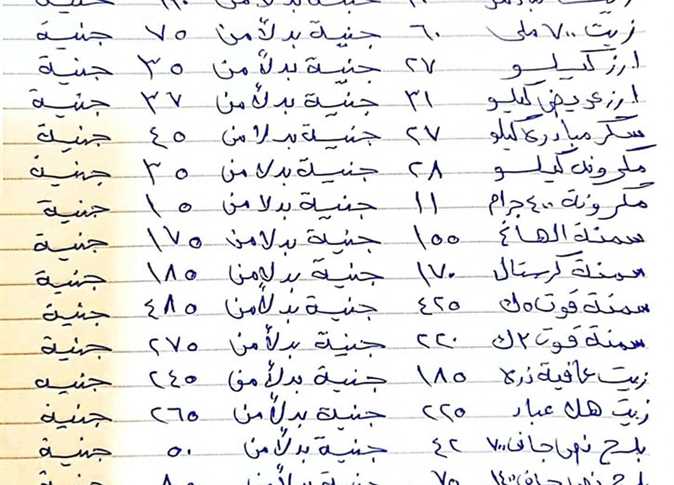 زيت ٧٠٠ ملى ٦٠ جنية بدلاً من ٧٥ جنية
ارز كيلو ٢٧ جنية بدلاً من ٣٥ جنية
ارز عريض كيلو ٣١ جنية بدلاً من ٣٧ جنية
سكر مبادرة كيلو ٢٧ جنية بدلا من ٤٥ جنية
مكرونه كيلو ٢٨ جنية بدلا من ٣٥ جنية
مكرونة ٤٠٠ جرام ١١ جنية بدلا من ١٥ جنية
سمنة الهانم ١٥٥ جنية بدلا من ١٧٥ جنية
سمنة كرستال ١٧٠ جنية بدلا من ١٨٥ جنية
سمنة قوت ٥ك ٤٢٥ جنية بدلاً من ٤٨٥ جنية
سمنة قوت ٢ك ٢٢٠ جنية بدلاً من ٢٧٥ جنية
زيت عافية ذرة ١٨٥ جنية بدلاً من ٢٤٥ جنيه
زيت هلا عباد ٢٢٥ جنية بدلاً من ٢٦٥ جنية
بلح نص جاف ٧٠٠ ٤٢ جنية بدلاً من ٥٠ جنية